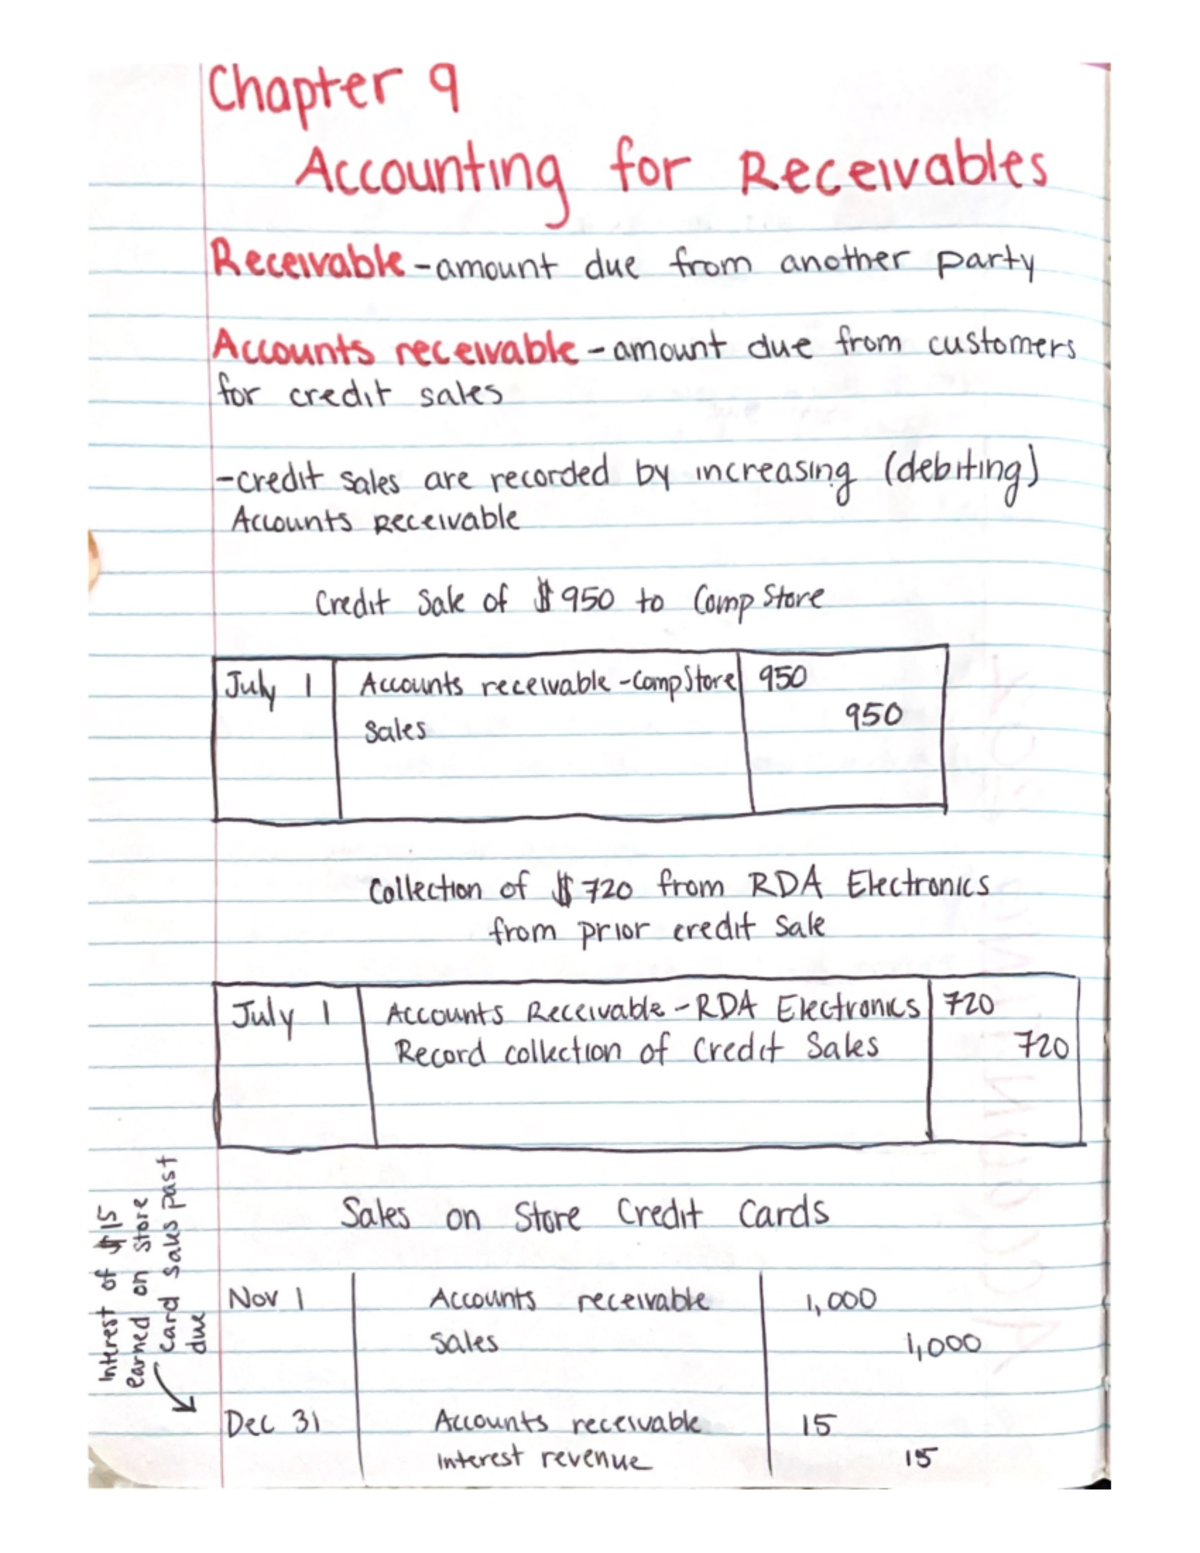 Chapter 9
Accounting for Receivables
Receivable - amount due from another party
Accounts receivable - amount due from customers
for credit sales
- credit sales are recorded by increasing (debiting)
Accounts Receivable
Credit Sale of $950 to CompStore
July 1 Accounts receivable - CompStore 950
Sales 950
Collection of $720 from RDA Electronics
from prior credit sale
July 1 Accounts Receivable - RDA Electronics 720
Record collection of Credit Sales 720
Interest of $15
earned on store
card sales past
due
Sales on Store Credit Cards
Nov 1 Accounts receivable 1,000
Sales 1,000
Dec 31 Accounts receivable 15
Interest revenue 15